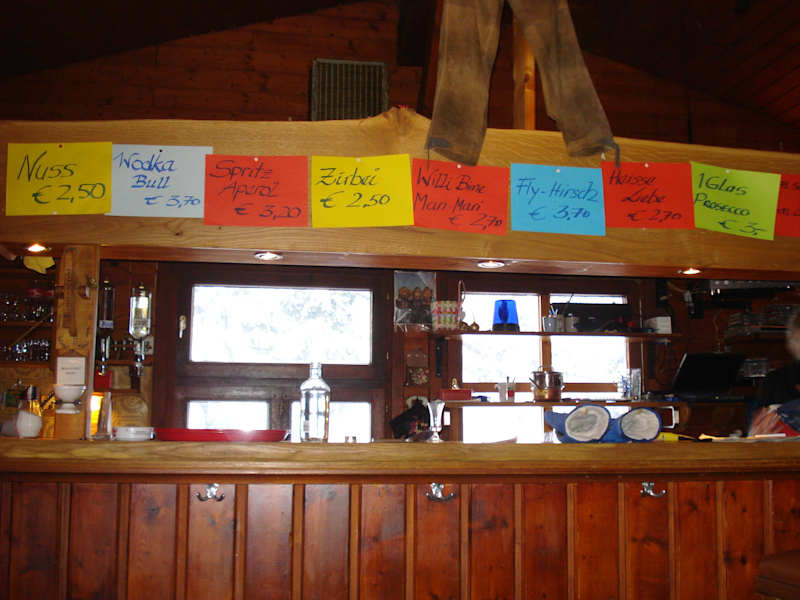 Nuss
€ 2,50
Wodka
Bull
€ 3,70
Spritz
Aperol
€ 3,20
Zirbei
€ 2,50
Willi Birne
Mari-Mari
€ 2,70
Fly-Hirsch
€ 3,70
Heisse
Liebe
€ 2,70
1 Glas
Prosecco
€ 3,-